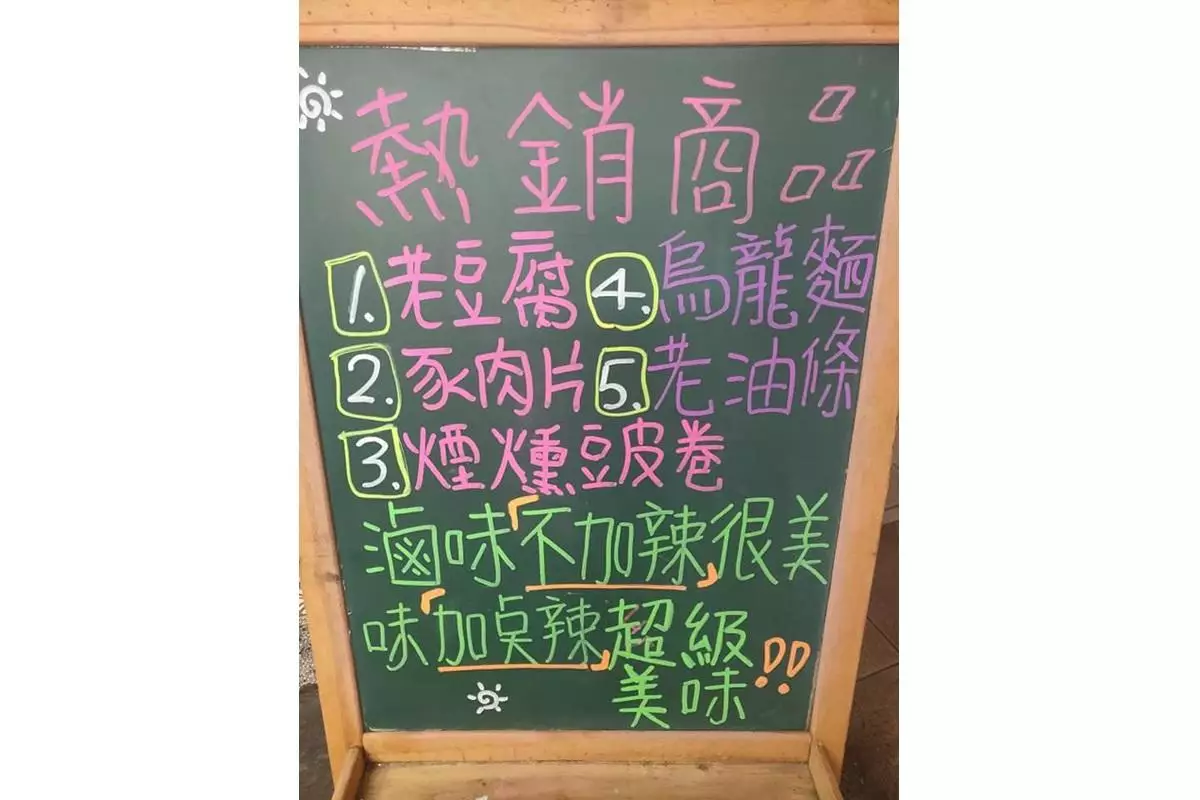 熱銷商品
1. 老豆腐 4. 烏龍麵
2. 豕肉片 5. 老油條
3. 煙燻豆皮卷
滷味「不加辣」很美
味「加點辣」超級
美味!!